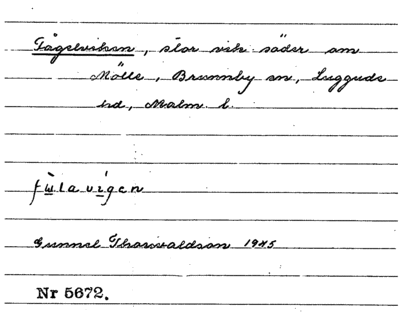 Fågelviken, stor vik söder om
Mölle, Brunnby sn, Luggude
hd, Malm. l.
fùlavígen
Gunnel Thorwaldson 1945
Nr 5672.